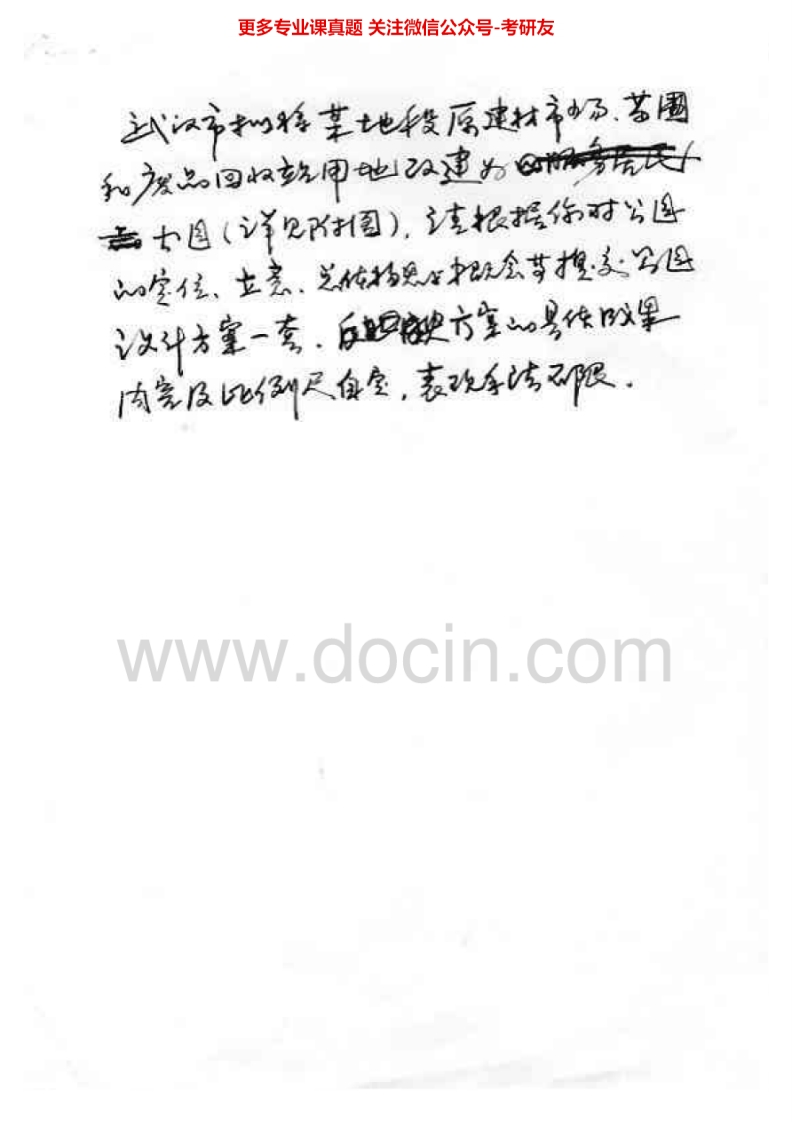 更多专业课真题 关注微信公众号-考研友
武汉市拟将某地段原建材市场、苗圃
和废品回收站用地改建为
公园(详见附图),请根据你对公园
的定位、立意、总体构思与概念等提交公园
设计方案一套.方案的具体成果
内容及比例尺自定,表现手法不限.
www.docin.com